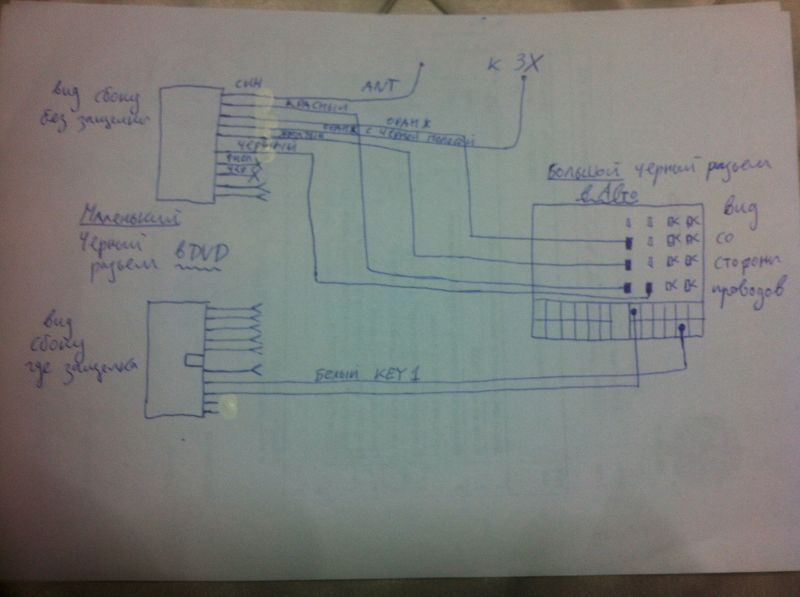 вид сбоку
без защелки
СИН
ANT
К ЗХ
КРАСНЫЙ
ОРАНЖ
ОРАНЖ С ЧЕРНОЙ ПОЛОСОЙ
ЖЕЛТЫЙ
ЧЕРНЫЙ
Маленький
Черный
разъем
в DVD
Большой черный разъем
в Авто
вид
со
стороны
проводов
вид
сбоку
где защелка
БЕЛЫЙ KEY 1